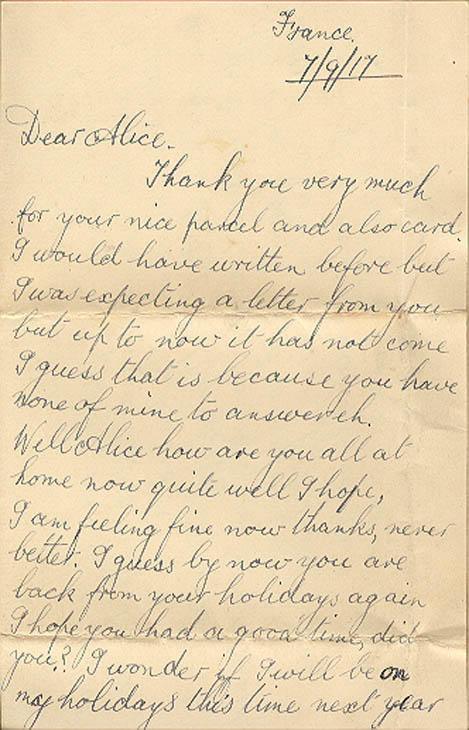 France.
7/9/17
Dear Alice.
Thank you very much
for your nice parcel and also card.
I would have written before but
I was expecting a letter from you
but up to now it has not come
I guess that is because you have
none of mine to answer eh.
Well Alice how are you all at
home now quite well I hope,
I am feeling fine now thanks, never
better. I guess by now you are
back from your holidays again
I hope you had a good time, did
you? I wonder if I will be on
my holidays this time next year